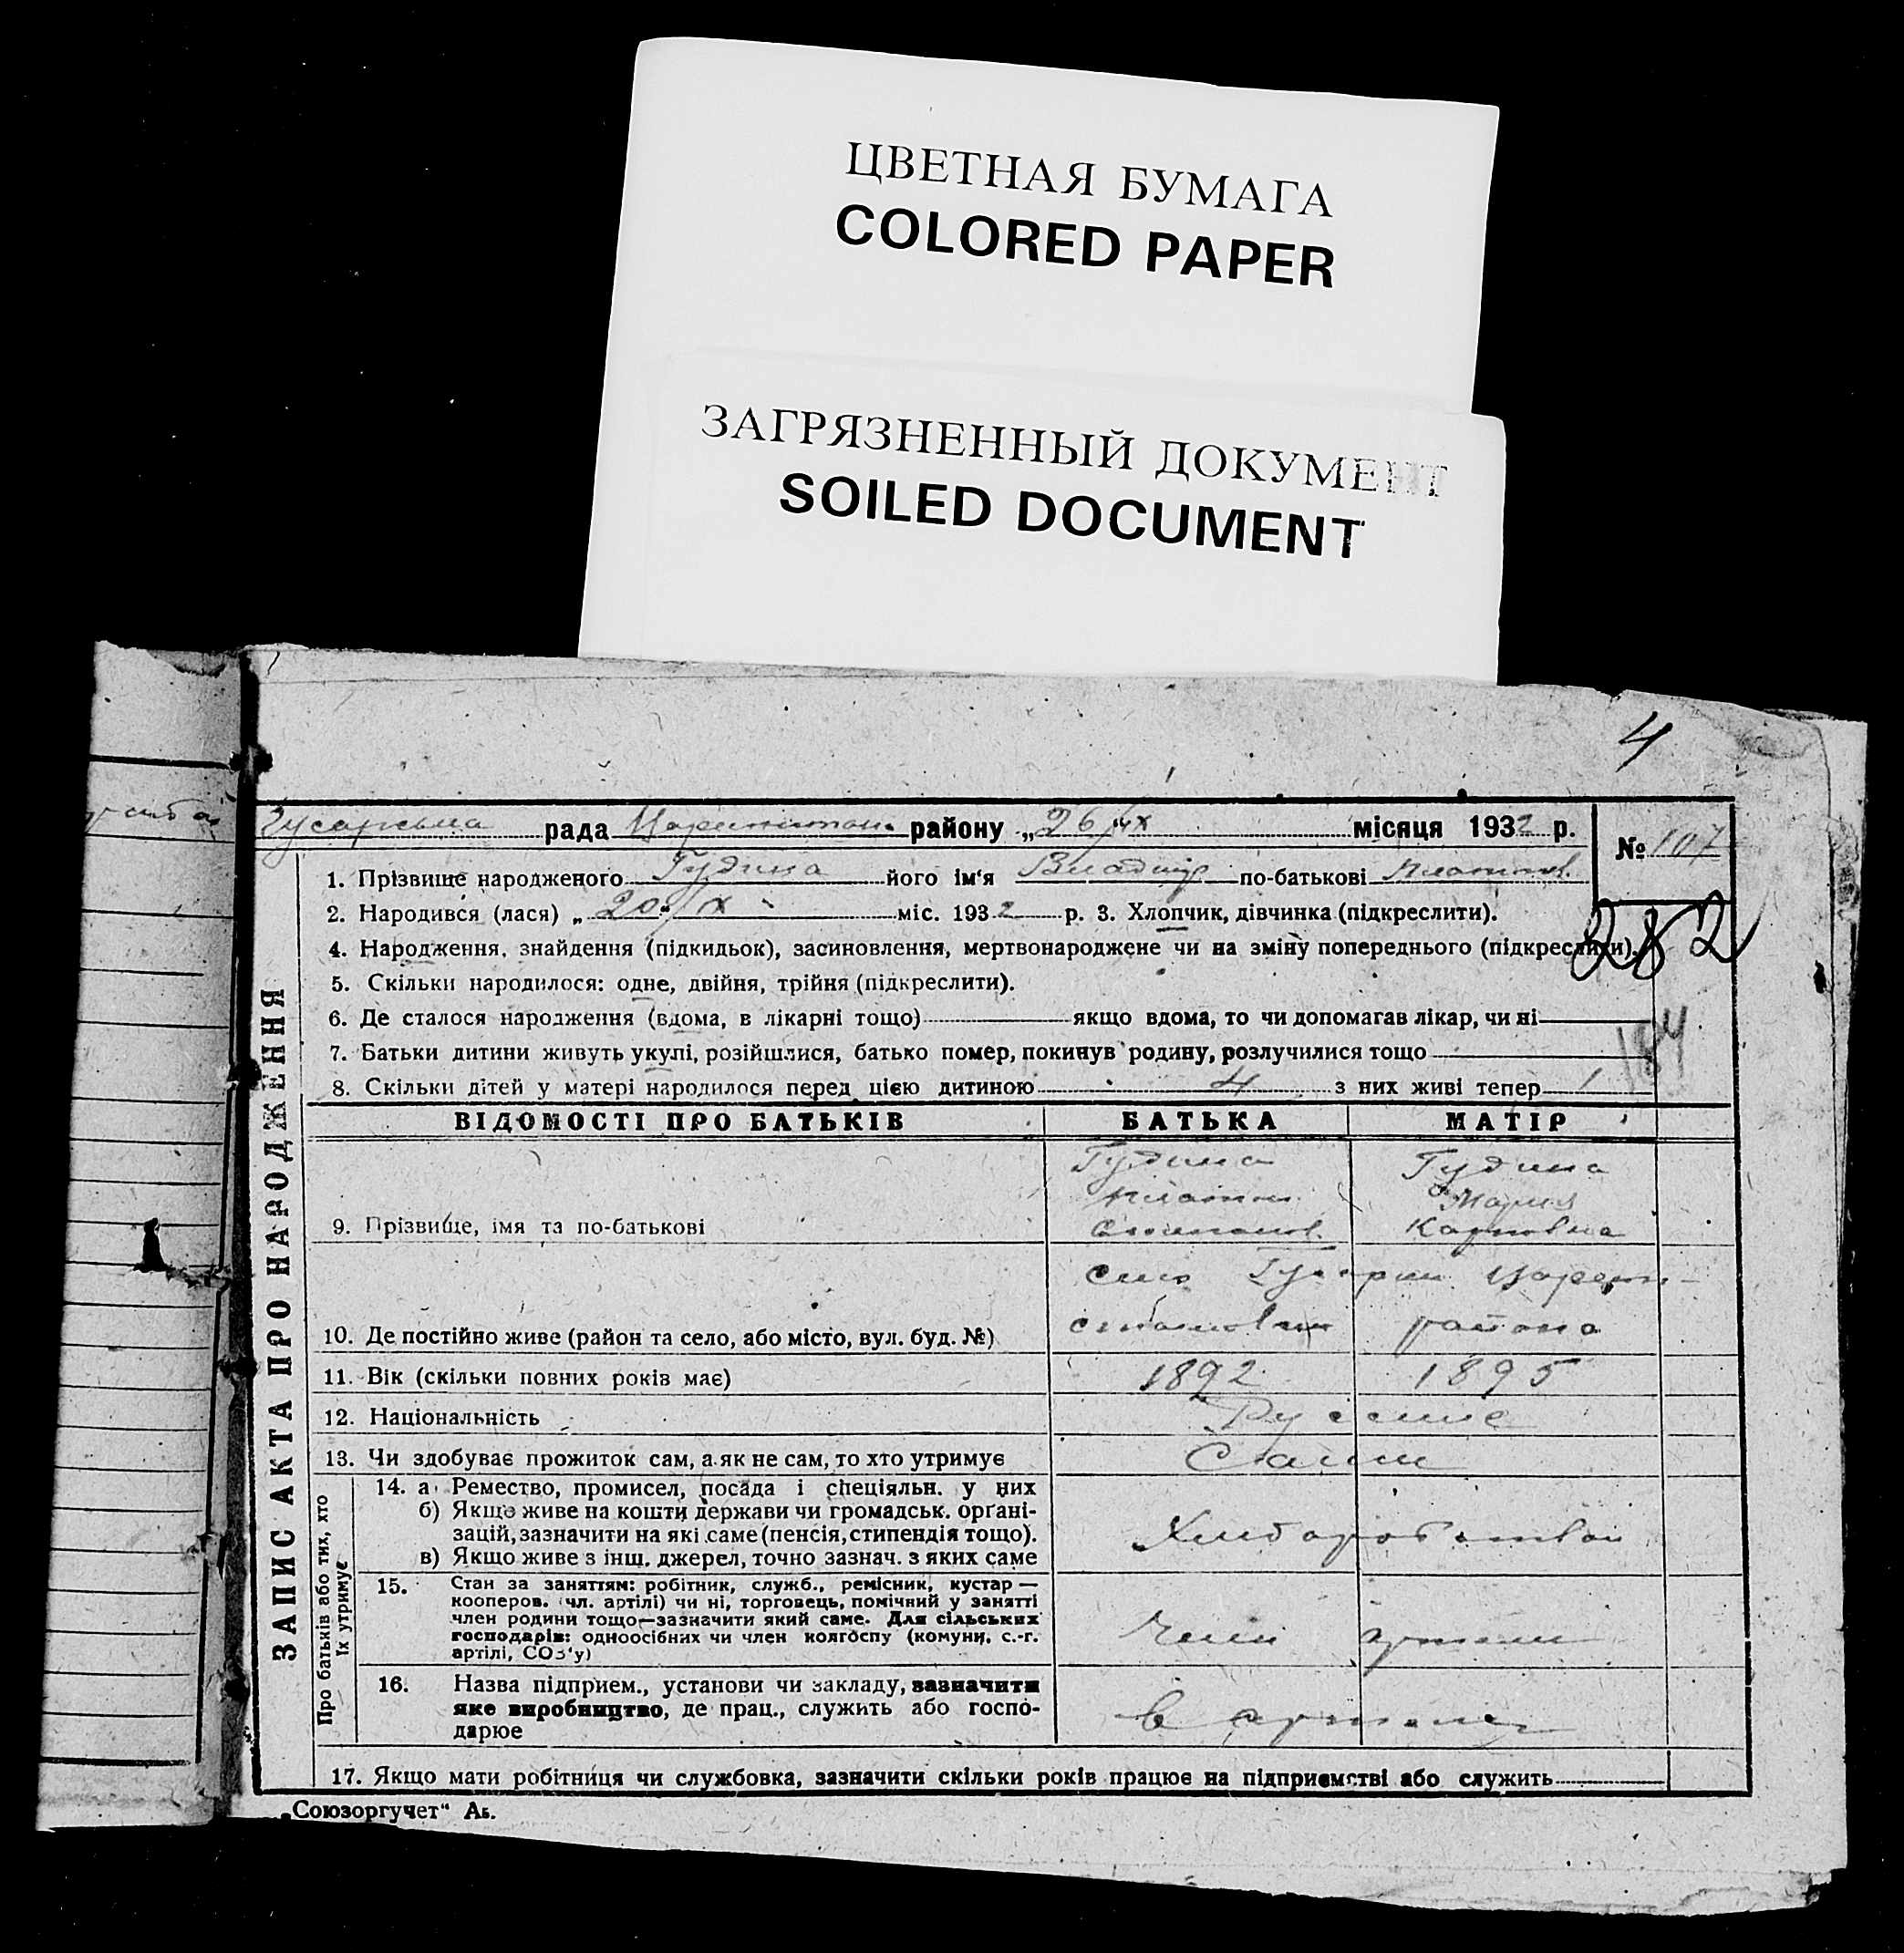 ЦВЕТНАЯ БУМАГА
COLORED PAPER
ЗАГРЯЗНЕННЫЙ ДОКУМЕНТ
SOILED DOCUMENT
4
рада району „26 IX місяця 1932 р.
№ 107
1. Прізвище народженого Гудина його ім‘я Владимір по-батькові Платон.
2. Народився (лася) „20 IX міс. 1932 р. 3. Хлопчик, дівчинка (підкреслити).
282
4. Народження, знайдення (підкидьок), засиновлення, мертвонароджене чи на зміну попереднього (підкреслити).
5. Скільки народилося: одне, двійня, трійня (підкреслити).
6. Де сталося народження (вдома, в лікарні тощо) якщо вдома, то чи допомагав лікар, чи ні
184
7. Батьки дитини живуть укупі, розійшлися, батько помер, покинув родину, розлучилися тощо
8. Скільки дітей у матері народилося перед цією дитиною 4 з них живі тепер 1
ЗАПИС АКТА ПРО НАРОДЖЕННЯ
ВІДОМОСТІ ПРО БАТЬКІВ БАТЬКА МАТІР
Гудина Гудина
Платон Мария
9. Прізвище, імя та по-батькові Карповна
село
10. Де постійно живе (район та село, або місто, вул. буд. №) района
11. Вік (скільки повних років має) 1892 1895
12. Національність Русские
13. Чи здобуває прожиток сам, а як не сам, то хто утримує Сами
Про батьків або тих, хто їх утримує
14. а Ремество, промисел, посада і спеціяльн. у них
б) Якщо живе на кошти держави чи громадськ. організацій, зазначити на які саме (пенсія, стипендія тощо).
в) Якщо живе з інш. джерел, точно зазнач. з яких саме
15. Стан за заняттям: робітник, служб., ремісник, кустар —
кооперов. (чл. артілі) чи ні, торговець, помічний у занятті
член родини тощо—зазначити який саме. Для сільських
господарів: одноосібних чи член колгоспу (комуни, с.-г.
артілі, СОЗ‘у)
Член артели
16. Назва підприєм., установи чи закладу, зазначити
яке виробництво, де прац., служить або господарює
в артели
17. Якщо мати робітниця чи службовка, зазначити скільки років працює на підприємстві або служить
„Союзоргучет“